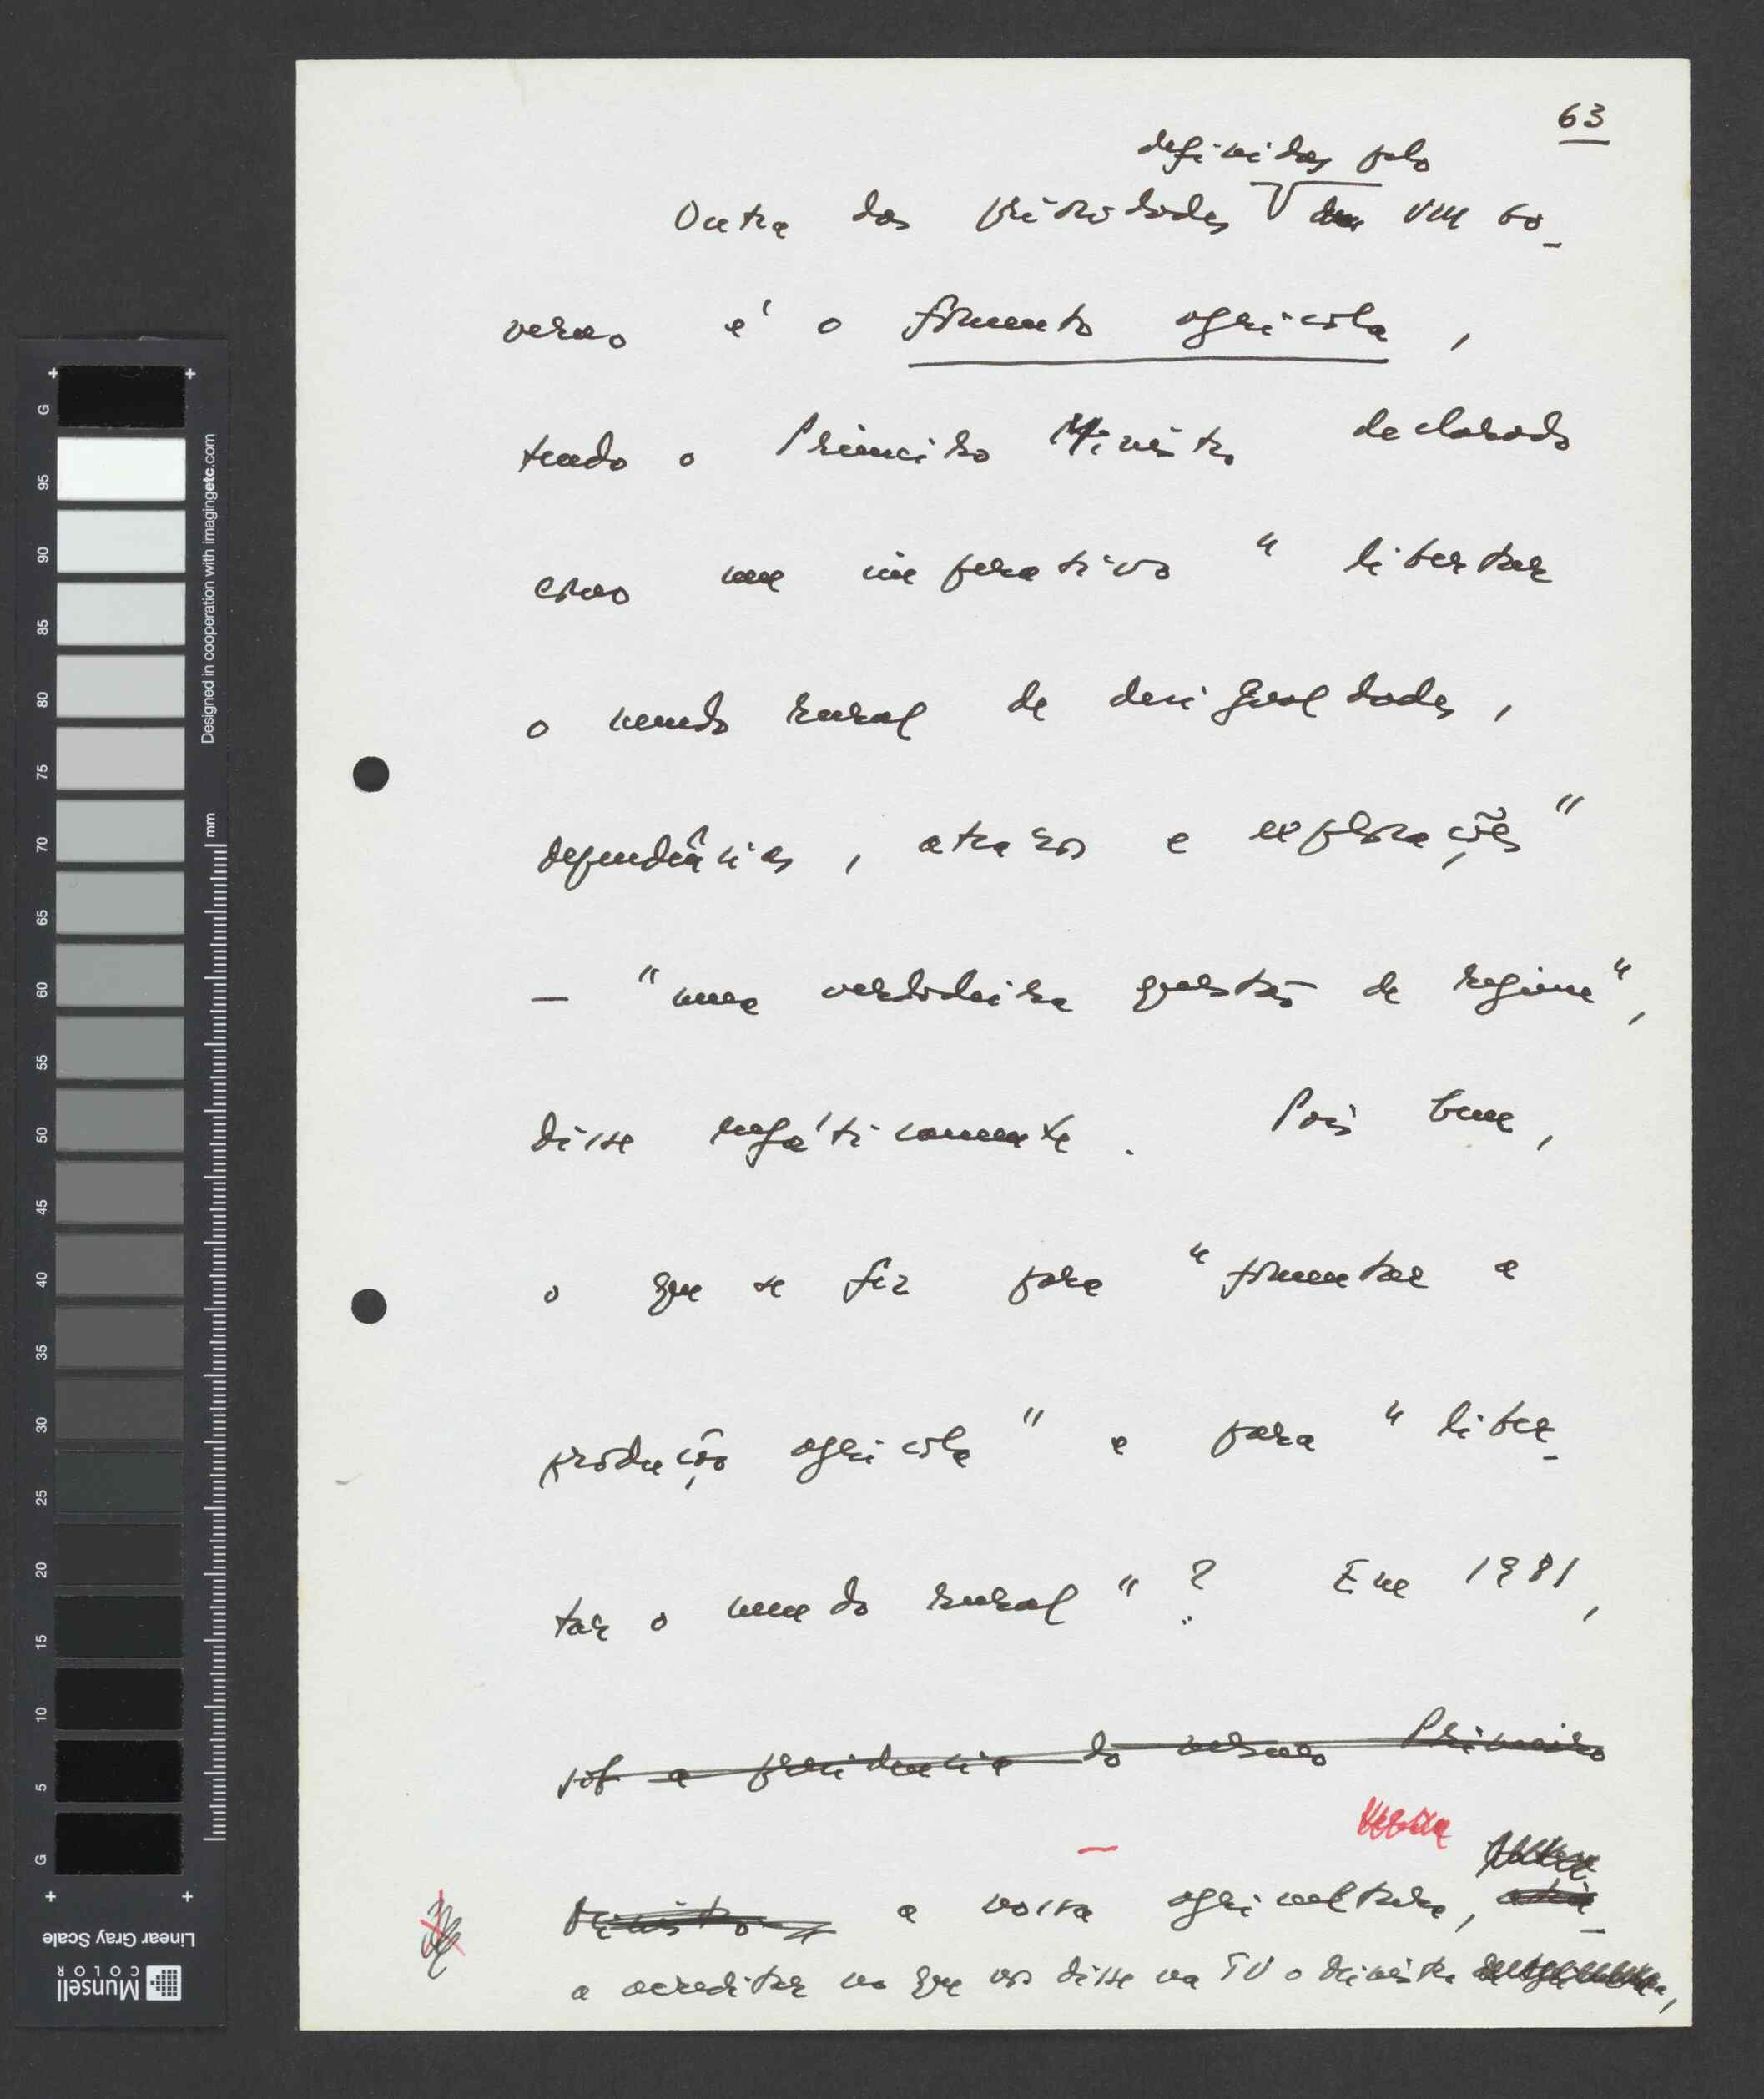 63
definidas pelo
Outra das prioridades do VIII Go-
verno é o fomento agrícola,
tendo o Primeiro Ministro declarado
como um imperativo "libertar
o mundo rural de desigualdades,
dependências, atrasos e explorações"
- "uma verdadeira questão de regime",
disse enfáticamente. Pois bem,
o que se fez para "fomentar a
produção agrícola" e para "liber-
tar o mundo rural"? Em 1981,
sob a presidência do mesmo Primeiro
Ministro a nossa agricultura,
a acreditar no que nos disse na TV o Ministro
G 95 90 85 80 75 70 65 60 55 50 45 40 35 30 25 20 15 10 5 G
mm
Designed in cooperation with imagingetc.com
Munsell COLOR
Linear Gray Scale